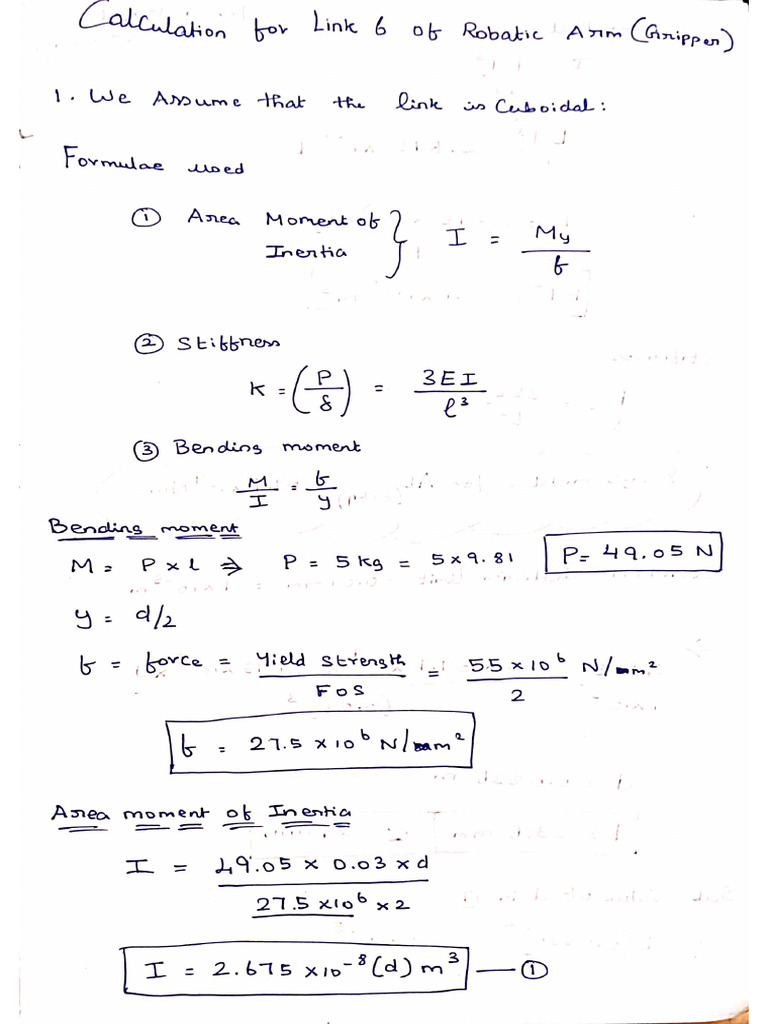 Calculation for Link 6 of Robatic Arm (Gripper)
1. We Assume that the link is Cuboidal:
Formulae used
① Area Moment of Inertia } I = My / f
② Stiffness
K = (P/δ) = 3EI / l³
③ Bending moment
M/I = f/y
Bending moment
M = P x l ⇒ P = 5 kg = 5 x 9.81 P = 49.05 N
y = d/2
f = force = Yield Strength / FoS = 55 x 10⁶ / 2 N/m²
f = 27.5 x 10⁶ N/m²
Area moment of Inertia
I = 49.05 x 0.03 x d / 27.5 x 10⁶ x 2
I = 2.675 x 10⁻⁸ (d) m³ — ①